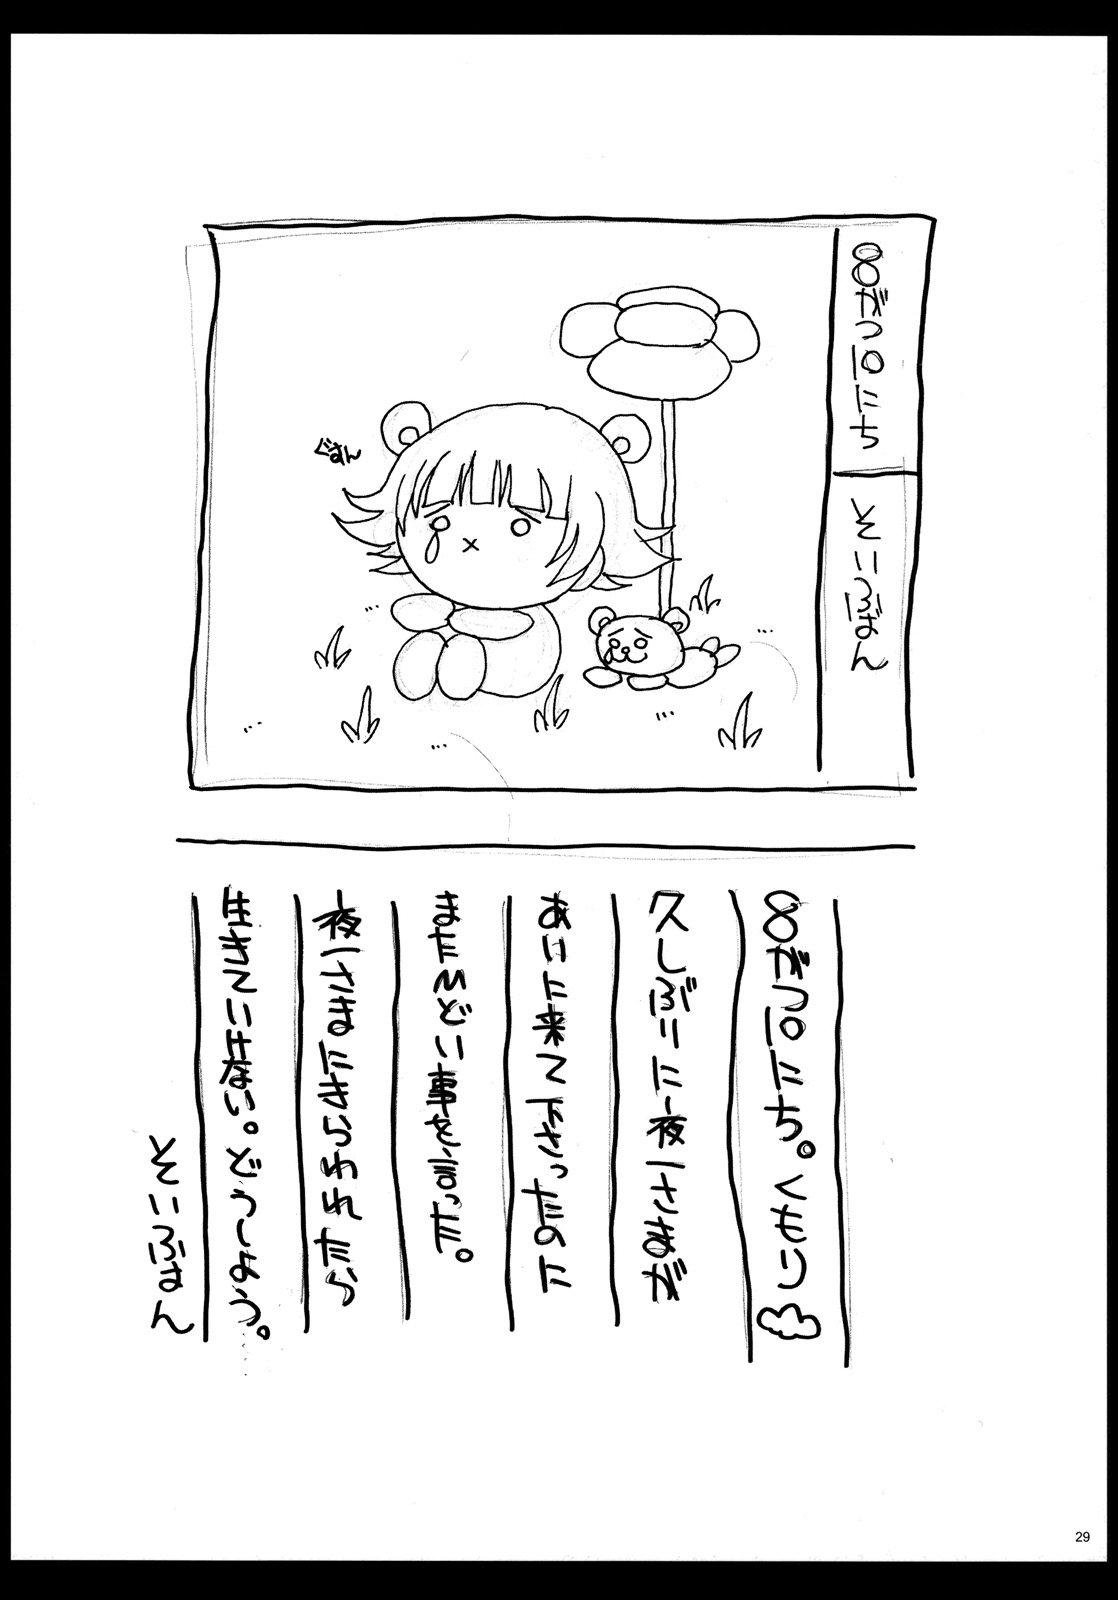 8がつ10にち
そいぶぼん
ぐすん
8がつ10にち。くもり
久しぶりに夜一さまが
あいに来て下さったのに
またひどい事を言った。
夜一さまにきらわれたら
生きていけない。どうしよう。
そいふぉん
29